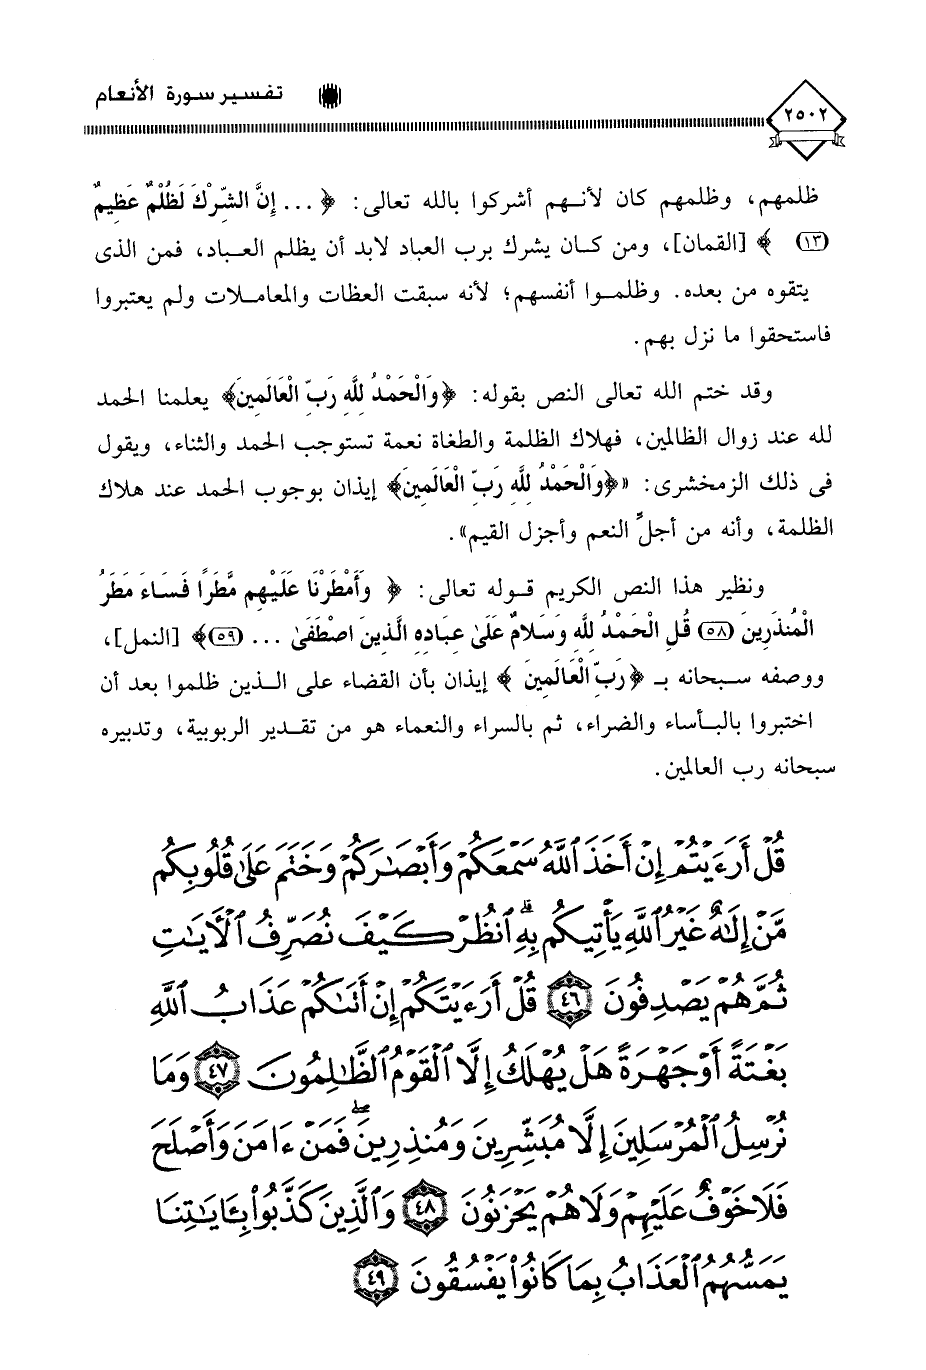 ٢٥٠٢ تفسير سورة الأنعام
ظلمهم، وظلمهم كان لأنهم أشركوا بالله تعالى: ﴿ ... إِنَّ الشِّرْكَ لَظُلْمٌ عَظِيمٌ
(١٣) ﴾ [القمان]، ومن كان يشرك برب العباد لابد أن يظلم العباد، فمن الذى
يتقوه من بعده. وظلموا أنفسهم؛ لأنه سبقت العظات والمعاملات ولم يعتبروا
فاستحقوا ما نزل بهم.
وقد ختم الله تعالى النص بقوله: ﴿وَالْحَمْدُ لِلَّهِ رَبِّ الْعَالَمِينَ﴾ يعلمنا الحمد
لله عند زوال الظالمين، فهلاك الظلمة والطغاة نعمة تستوجب الحمد والثناء، ويقول
فى ذلك الزمخشرى: «﴿وَالْحَمْدُ لِلَّهِ رَبِّ الْعَالَمِينَ﴾ إيذان بوجوب الحمد عند هلاك
الظلمة، وأنه من أجلِّ النعم وأجزل القيم».
ونظير هذا النص الكريم قوله تعالى: ﴿ وَأَمْطَرْنَا عَلَيْهِم مَّطَرًا فَسَاءَ مَطَرُ
الْمُنذَرِينَ (٥٨) قُلِ الْحَمْدُ لِلَّهِ وَسَلَامٌ عَلَىٰ عِبَادِهِ الَّذِينَ اصْطَفَىٰ ... (٥٩)﴾ [النمل]،
ووصفه سبحانه بـ ﴿رَبِّ الْعَالَمِينَ ﴾ إيذان بأن القضاء على الذين ظلموا بعد أن
اختبروا بالبأساء والضراء، ثم بالسراء والنعماء هو من تقدير الربوبية، وتدبيره
سبحانه رب العالمين.
قُلْ أَرَءَيْتُمْ إِنْ أَخَذَ ٱللَّهُ سَمْعَكُمْ وَأَبْصَٰرَكُمْ وَخَتَمَ عَلَىٰ قُلُوبِكُم
مَّنْ إِلَٰهٌ غَيْرُ ٱللَّهِ يَأْتِيكُم بِهِ ۗ ٱنظُرْ كَيْفَ نُصَرِّفُ ٱلْأَيَٰتِ
ثُمَّ هُمْ يَصْدِفُونَ ٤٦ قُلْ أَرَءَيْتَكُمْ إِنْ أَتَىٰكُمْ عَذَابُ ٱللَّهِ
بَغْتَةً أَوْ جَهْرَةً هَلْ يُهْلَكُ إِلَّا ٱلْقَوْمُ ٱلظَّٰلِمُونَ ٤٧ وَمَا
نُرْسِلُ ٱلْمُرْسَلِينَ إِلَّا مُبَشِّرِينَ وَمُنذِرِينَ ۖ فَمَنْ ءَامَنَ وَأَصْلَحَ
فَلَا خَوْفٌ عَلَيْهِمْ وَلَا هُمْ يَحْزَنُونَ ٤٨ وَٱلَّذِينَ كَذَّبُوا۟ بِـَٔايَٰتِنَا
يَمَسُّهُمُ ٱلْعَذَابُ بِمَا كَانُوا۟ يَفْسُقُونَ ٤٩